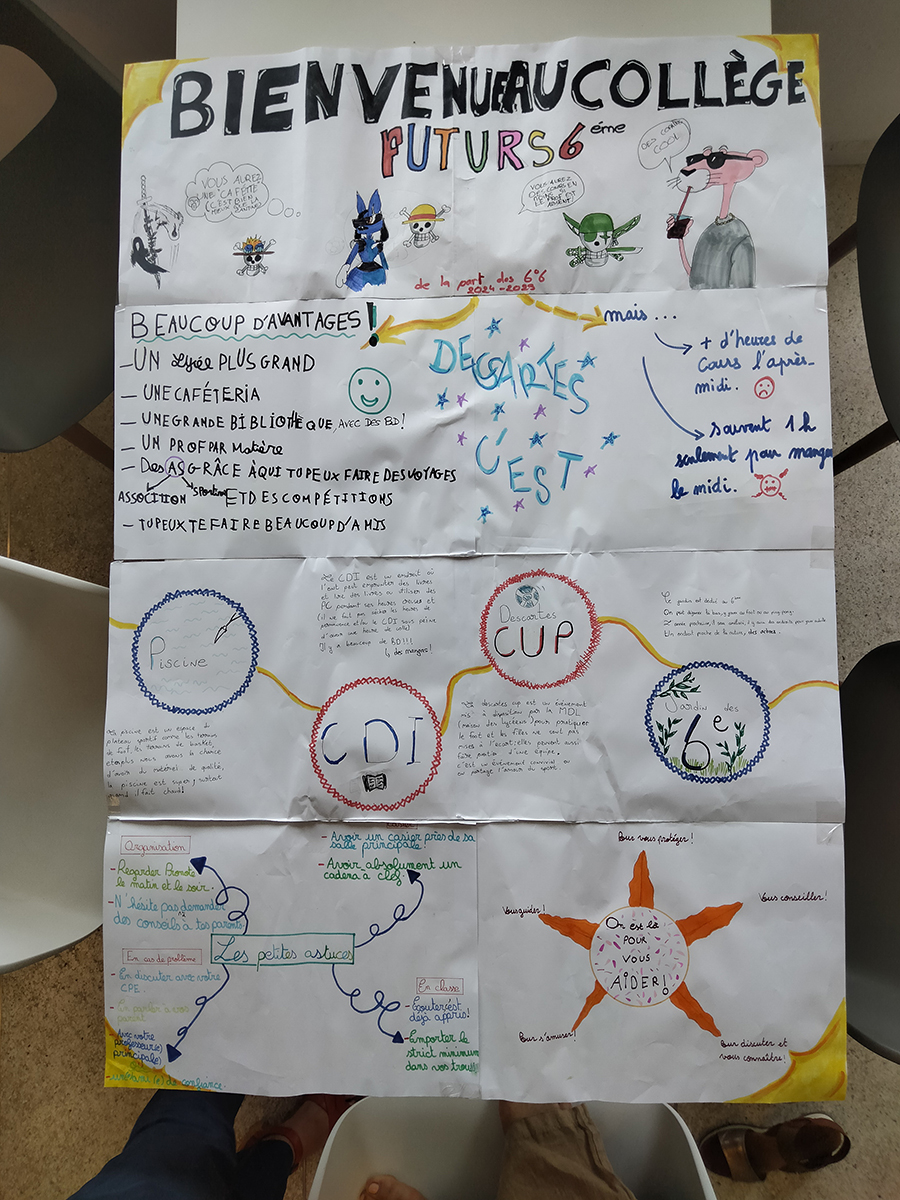 BIENVENUE AU COLLÈGE
FUTURS 6ème
VOUS AUREZ
UNE CAFÈTE
(C'EST BIEN
MIEUX QUE LA
VOUS AUREZ
DES COURS EN
COOL
de la part des 6°6
2024-2025
BEAUCOUP D'AVANTAGES!
- UN lycée PLUS GRAND
- UNE CAFÉTERIA
- UNE GRANDE BIBLIOTHEQUE, AVEC DES BD!
- UN PROF PAR Matière
- Des AS GRÂCE À QUI TU PEUX FAIRE DES VOYAGES
ASSOCITION sportive ET DES COMPÉTITIONS
- TU PEUX TE FAIRE BEAUCOUP D'AMIS
DESCARTES
C'EST
mais ...
+ d'heures de
cours l'après-
midi.
souvent 1h
seulement pour manger
le midi.
Piscine
La piscine est un espace du
plateau sportif comme les terrains
de foot, les terrains de basket,
etc, plus nous avons la chance
d'avoir du matériel de qualité,
la piscine est super, surtout
quand il fait chaud!
Le CDI est un endroit où
l'on peut emprunter des livres
et lire des livres ou utiliser des
PC pendant ses heures creuses et
(il ne faut pas sécher les heures de
permanence et/ou le CDI sous peine
d'avoir une heure de colle)
Il y a beaucoup de BD!!!
des mangas!
CDI
Descartes
CUP
La descartes cup est un événement
mis à disposition par la MDL
(maison des lycéens) pour pratiquer
le foot et les filles ne sont pas
mises à l'écart, elles peuvent aussi
faire partie d'une équipe,
c'est un événement convivial où
on partage l'amour du sport.
Le jardin est dédié au 6ème
Un endroit proche de la nature, des arbres.
Jardin des
6e
Organisation
- Regarder Pronote
le matin et le soir.
- N'hésite pas à demander
des conseils à tes parents.
- Avoir un casier près de sa
salle principale!
- Avoir absolument un
cadena à clef.
Les petites astuces
En cas de problème
- En discuter avec votre
CPE.
- En parler à vos
parent
- Avec votre
professeur(e)
principale(e)
(e) de confiance.
En classe
- Ecouter c'est
déjà appris!
- Emporter le
strict minimum
dans vos trousse!
Pour vous protéger!
Vous guider!
Vous conseiller!
On est là
POUR
VOUS
AIDER!
Pour s'amuser!
Pour discuter et
vous connaître!